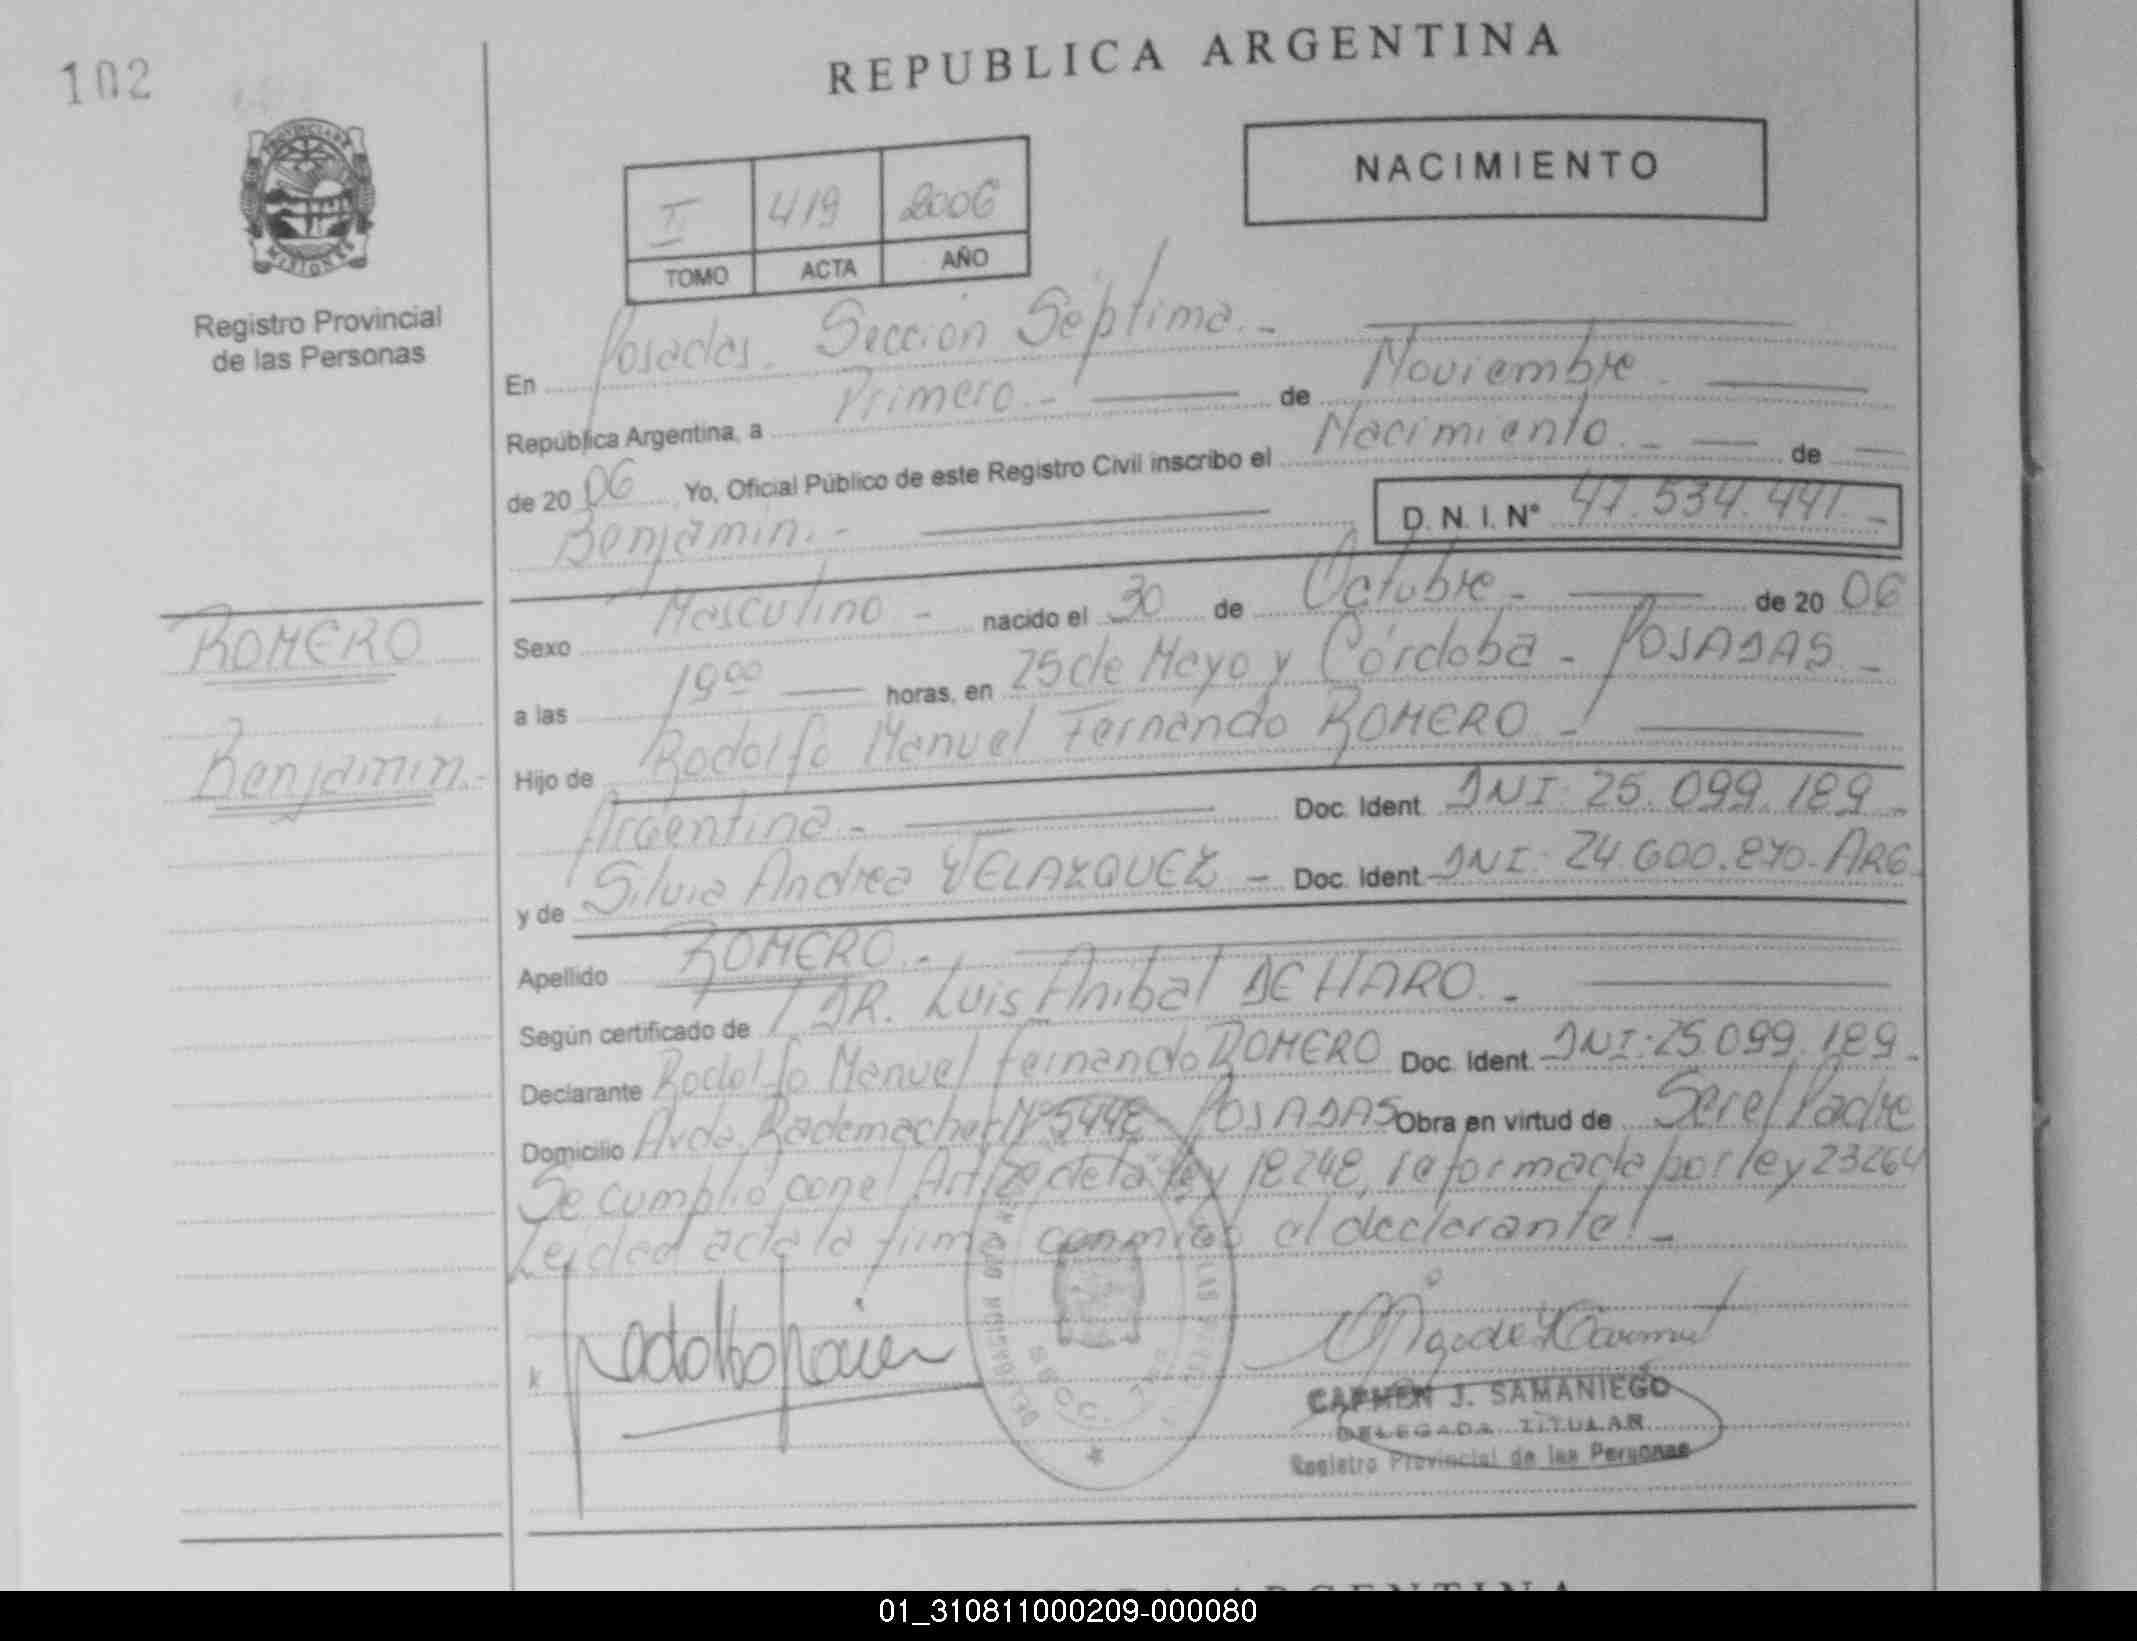 102
REPUBLICA ARGENTINA
NACIMIENTO
II 419 2006
TOMO ACTA AÑO
PROVINCIA DE
MISIONES
Registro Provincial
de las Personas
En Posadas. Sección Séptima.-
República Argentina, a Primero.- de Noviembre
de 2006 Yo, Oficial Público de este Registro Civil inscribo el Nacimiento.- de
Benjamin.- D. N. I. Nº 47.534.441.-
Sexo Masculino - nacido el 30 de Octubre - de 2006
ROMERO
a las 19 00 horas, en 25 de Mayo y Córdoba - POSADAS.-
Benjamin.-
Hijo de Rodolfo Manuel Fernando ROMERO -
Argentina - Doc. Ident. DNI: 25.099.189-
y de Silvia Andrea VELAZQUEZ - Doc. Ident. DNI: 24.600.870-ARG.
Apellido ROMERO.-
Según certificado de DR. Luis Anibal DE HARO.-
Declarante Rodolfo Manuel Fernando ROMERO Doc. Ident. DNI: 25.099.189-
Domicilio Avda. Rademacher Nº 5448 - POSADAS Obra en virtud de Ser el Padre
Se cumplió con el Art. de la ley 18248, reformada por ley 23264
Leida el acta la firma conmigo el declarante!-
CARMEN J. SAMANIEGO
DELEGADA TITULAR
Registro Provincial de las Personas
01_310811000209-000080